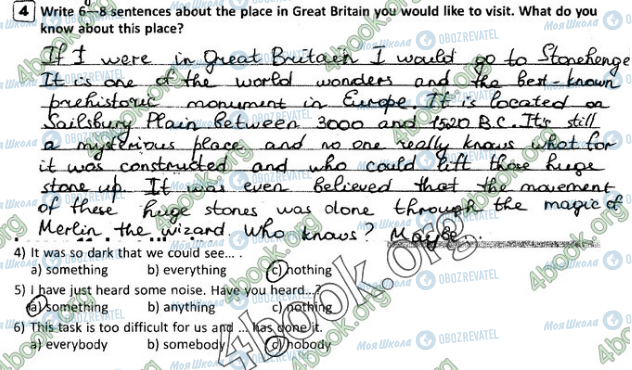 4 Write 6—8 sentences about the place in Great Britain you would like to visit. What do you
know about this place?
If I were in Great Britain I would go to Stonehenge
It is one of the world wonders and the best-known
prehistoric monument in Europe. It is located on
Sailsbury Plain between 3000 and 1520 B.C. It's still
a mysterious place and no one really knows what for
it was constructed and who could lift those huge
stone up. It was even believed that the movement
of these huge stones was done through the magic of
Merlin the wizard. Who knows? Maybe.
4) It was so dark that we could see... .
a) something b) everything c) nothing
5) I have just heard some noise. Have you heard...?
a) something b) anything c) nothing
6) This task is too difficult for us and ... has done it.
a) everybody b) somebody c) nobody
4book.org
Моя Школа OBOZREVATEL